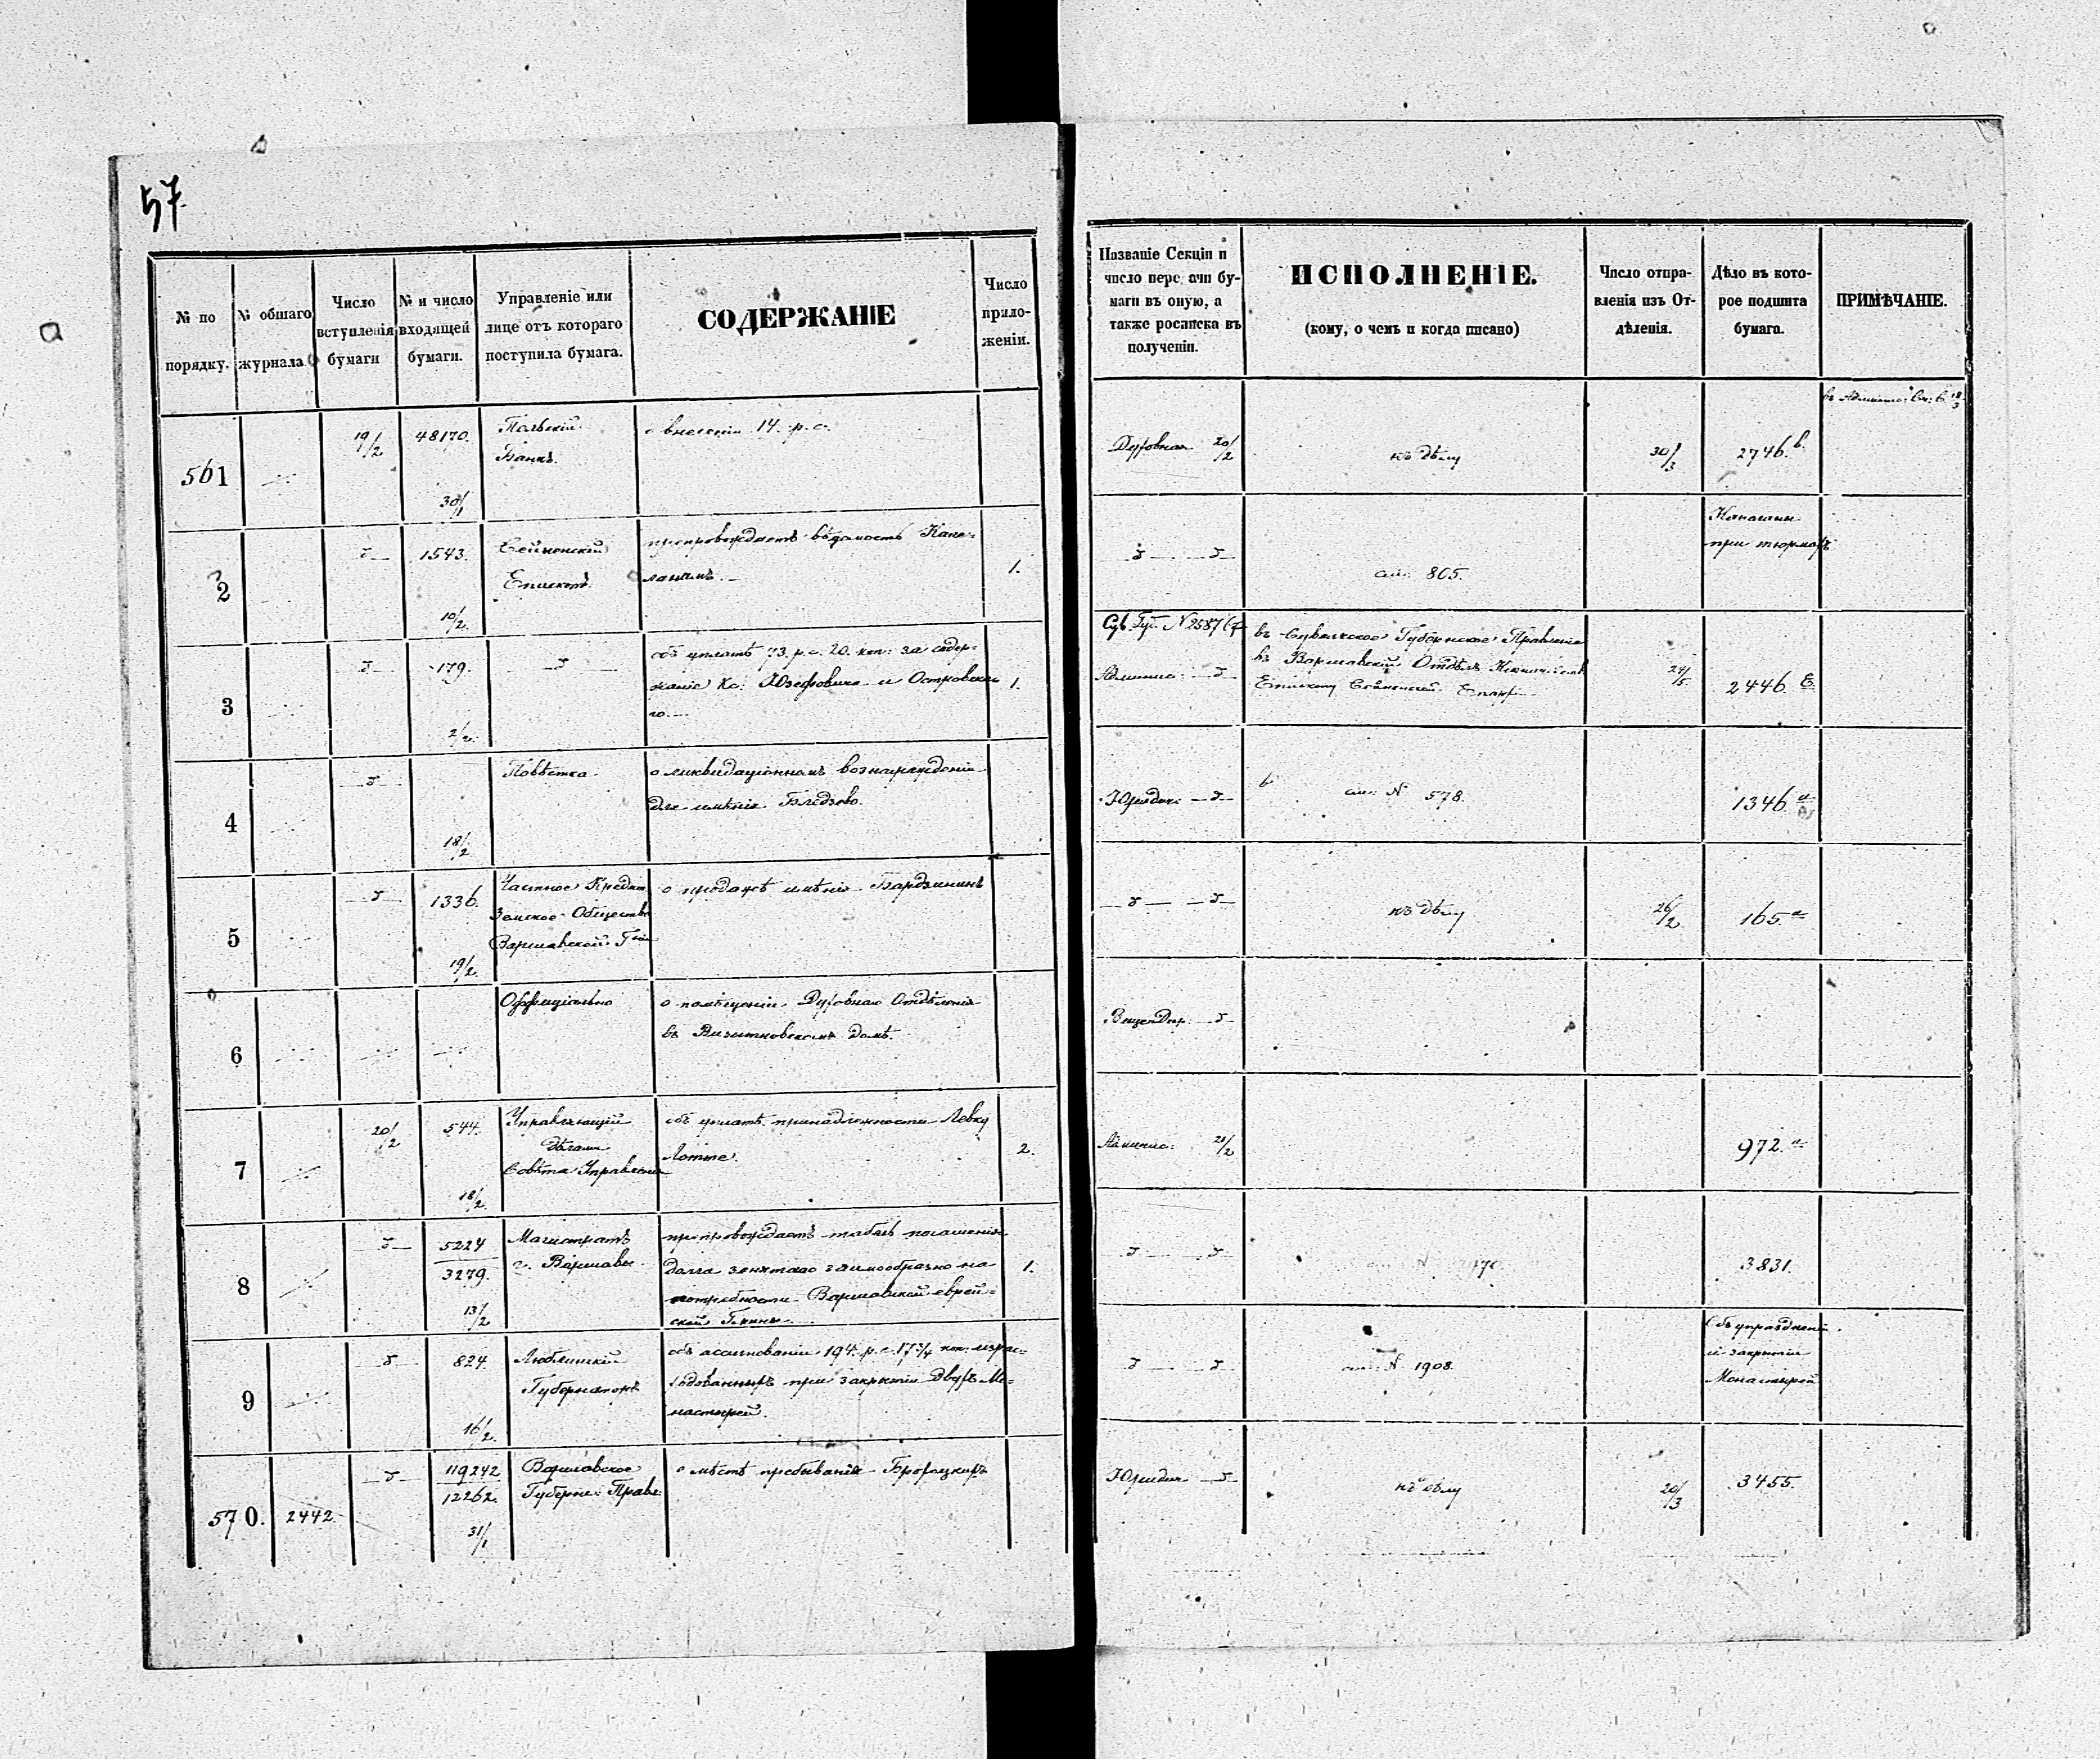 57.
№ по порядку.
№ общаго журнала
Число вступленія бумаги
№ и число входящей бумаги.
Управленіе или лице отъ котораго поступила бумага.
СОДЕРЖАНІЕ
Число приложеніи.
Названіе Секціи и число передачи бумаги въ оную, а также росписка въ полученіи.
ИСПОЛНЕНІЕ.
(кому, о чемъ и когда писано)
Число отправленія изъ Отдѣленія.
Дѣло въ которое подшита бумага.
ПРИМѢЧАНІЕ.
561
19/2
48170.
30/1
Польскій
Банкъ.
о внесеніи 14. р. с.
Духовная 20/2
къ дѣлу
30/3
2746. b.
2
1543.
10/2.
Сейненскій
Епископъ
препровождаетъ вѣдомость Капе-
ланамъ.
1.
сли: 805.
Капеланы
при тюрмахъ
3
179.
2/2.
объ уплатѣ 73. р. с. 20. коп: за содер-
жаніе Кс: Юзефовича и Островска-
го.
1.
№ 2587
Админис:
въ Сувалкское Губернское Правленіе
въ Варшавскій Отдѣлъ
Епископу Сейненской Епарх
24/5
2446. E.
4
18/2
Повѣстка
о ликвидаціонномъ вознагражденіи
для имѣнія Бледзово.
Юридич:
сли: № 578.
1346. a
5
1336.
19/2.
Частное Кредит.
Земское Общество
Варшавской Губ
о продажѣ имѣнія Бардзининъ
къ дѣлу
26/2
165. a
6
Оффиціально
о помѣщеніи Духовнаго Отдѣленія
въ Визитковскомъ домѣ.
ВицеДир.
7
20/2
544.
18/2.
Управляющій
дѣлами
Совѣта Управленія
объ уплатѣ принадлежности Левку
Лотте.
2.
Админис: 21/2
972. a
8
5224
3279.
13/2
Магистратъ
г. Варшавы
препровождаетъ табель погашенія
долга занятаго заимообразно на
потребности Варшавской еврей-
ской Гмины.
1.
3831.
9
824.
16/2.
Люблинскій
Губернаторъ
объ асигнованіи 194. р. с. 17 3/4 коп: израс-
ходованныхъ при закрытіи двухъ Мо-
настырей.
сли: № 1908.
Объ упраздненіи
и закрытіи
Монастырей
570.
2442.
119242
12262.
31/1
Варшавское
Губерн: Правл:
о мѣстѣ пребыванія
Юридич
къ дѣлу
20/3
3455.